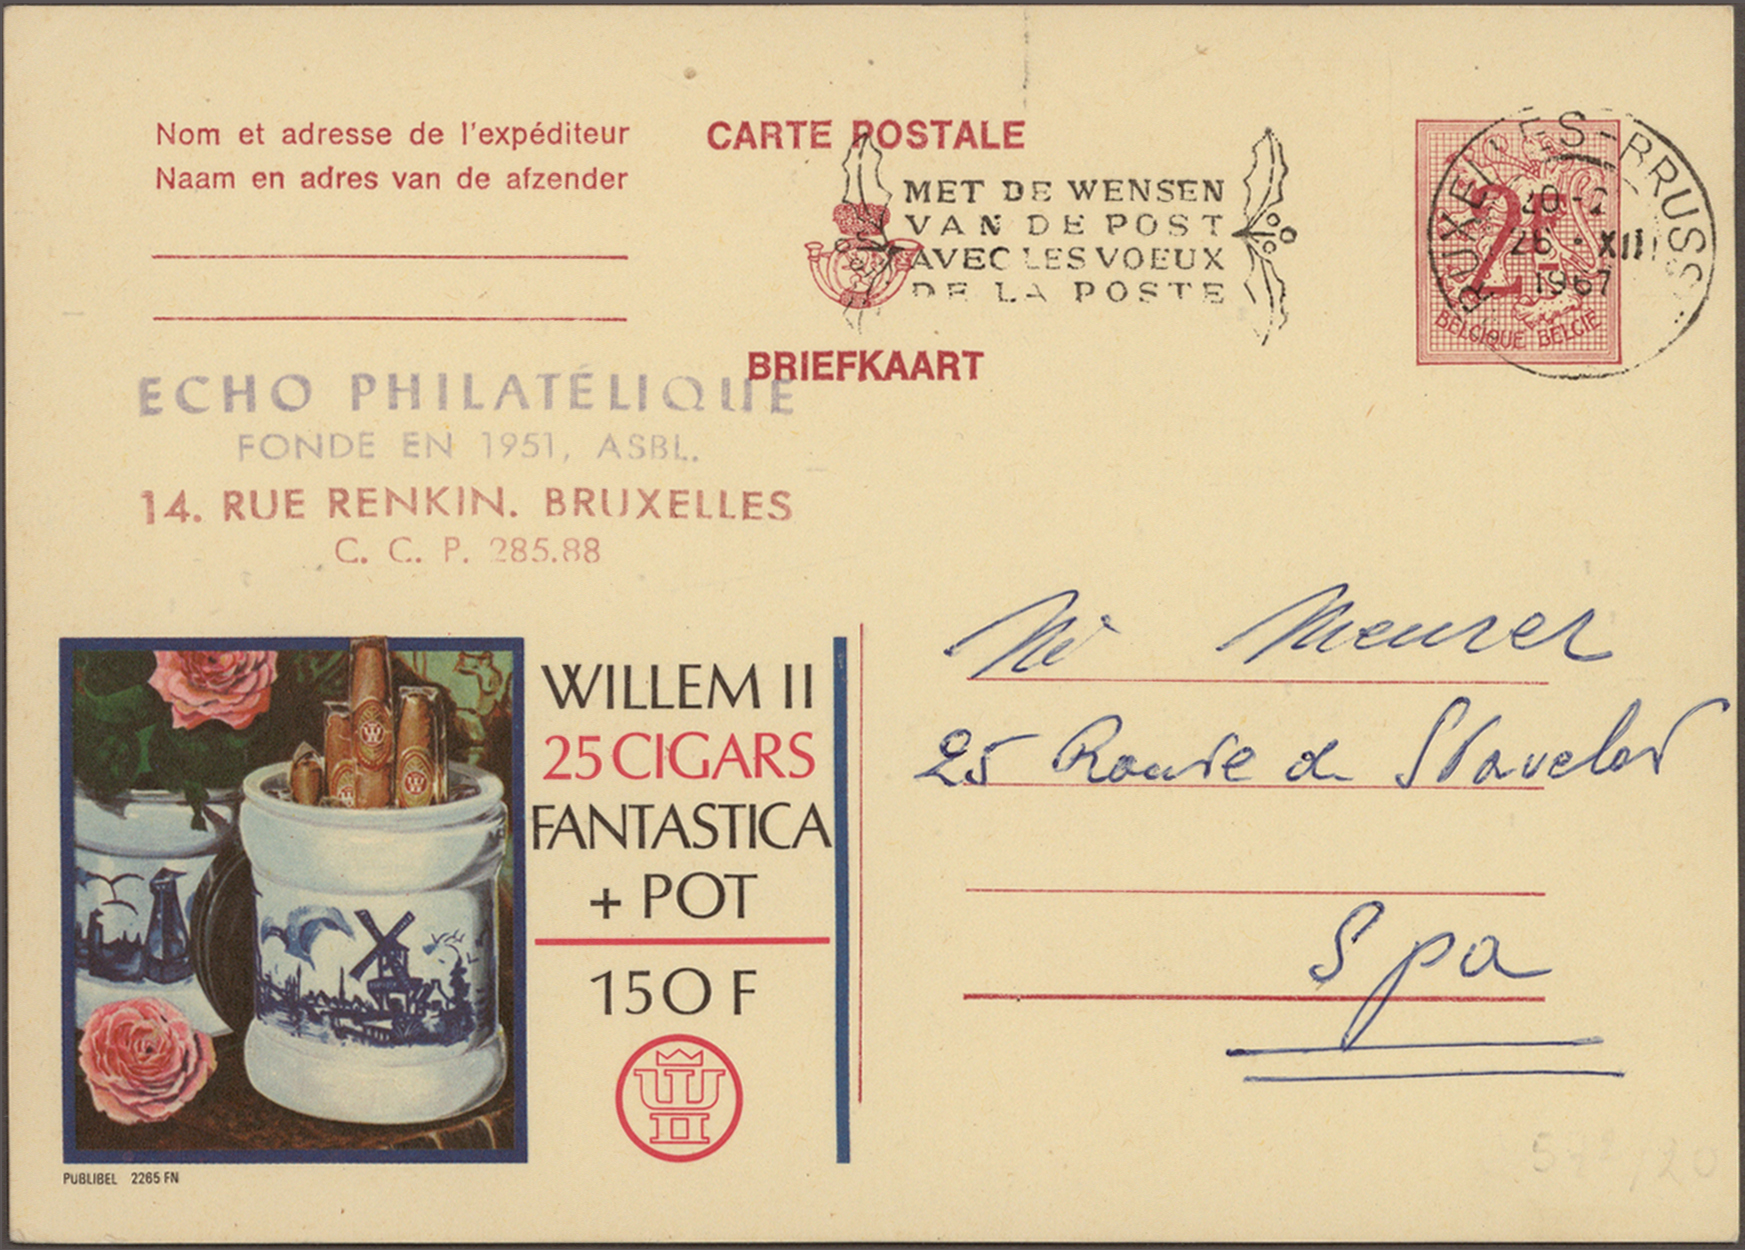 Nom et adresse de l'expéditeur
Naam en adres van de afzender
CARTE POSTALE
MET DE WENSEN
VAN DE POST
AVEC LES VOEUX
DE LA POSTE
BRIEFKAART
BRUXELLES-BRUSS
26 · XII
1967
2F
BELGIQUE BELGIË
ECHO PHILATÉLIQUE
FONDE EN 1951, ASBL.
14. RUE RENKIN. BRUXELLES
C. C. P. 285.88
WILLEM II
25 CIGARS
FANTASTICA
+ POT
150 F
W II
PUBLIBEL 2265 FN
Mr Meurer
25 Route de Stavelot
Spa